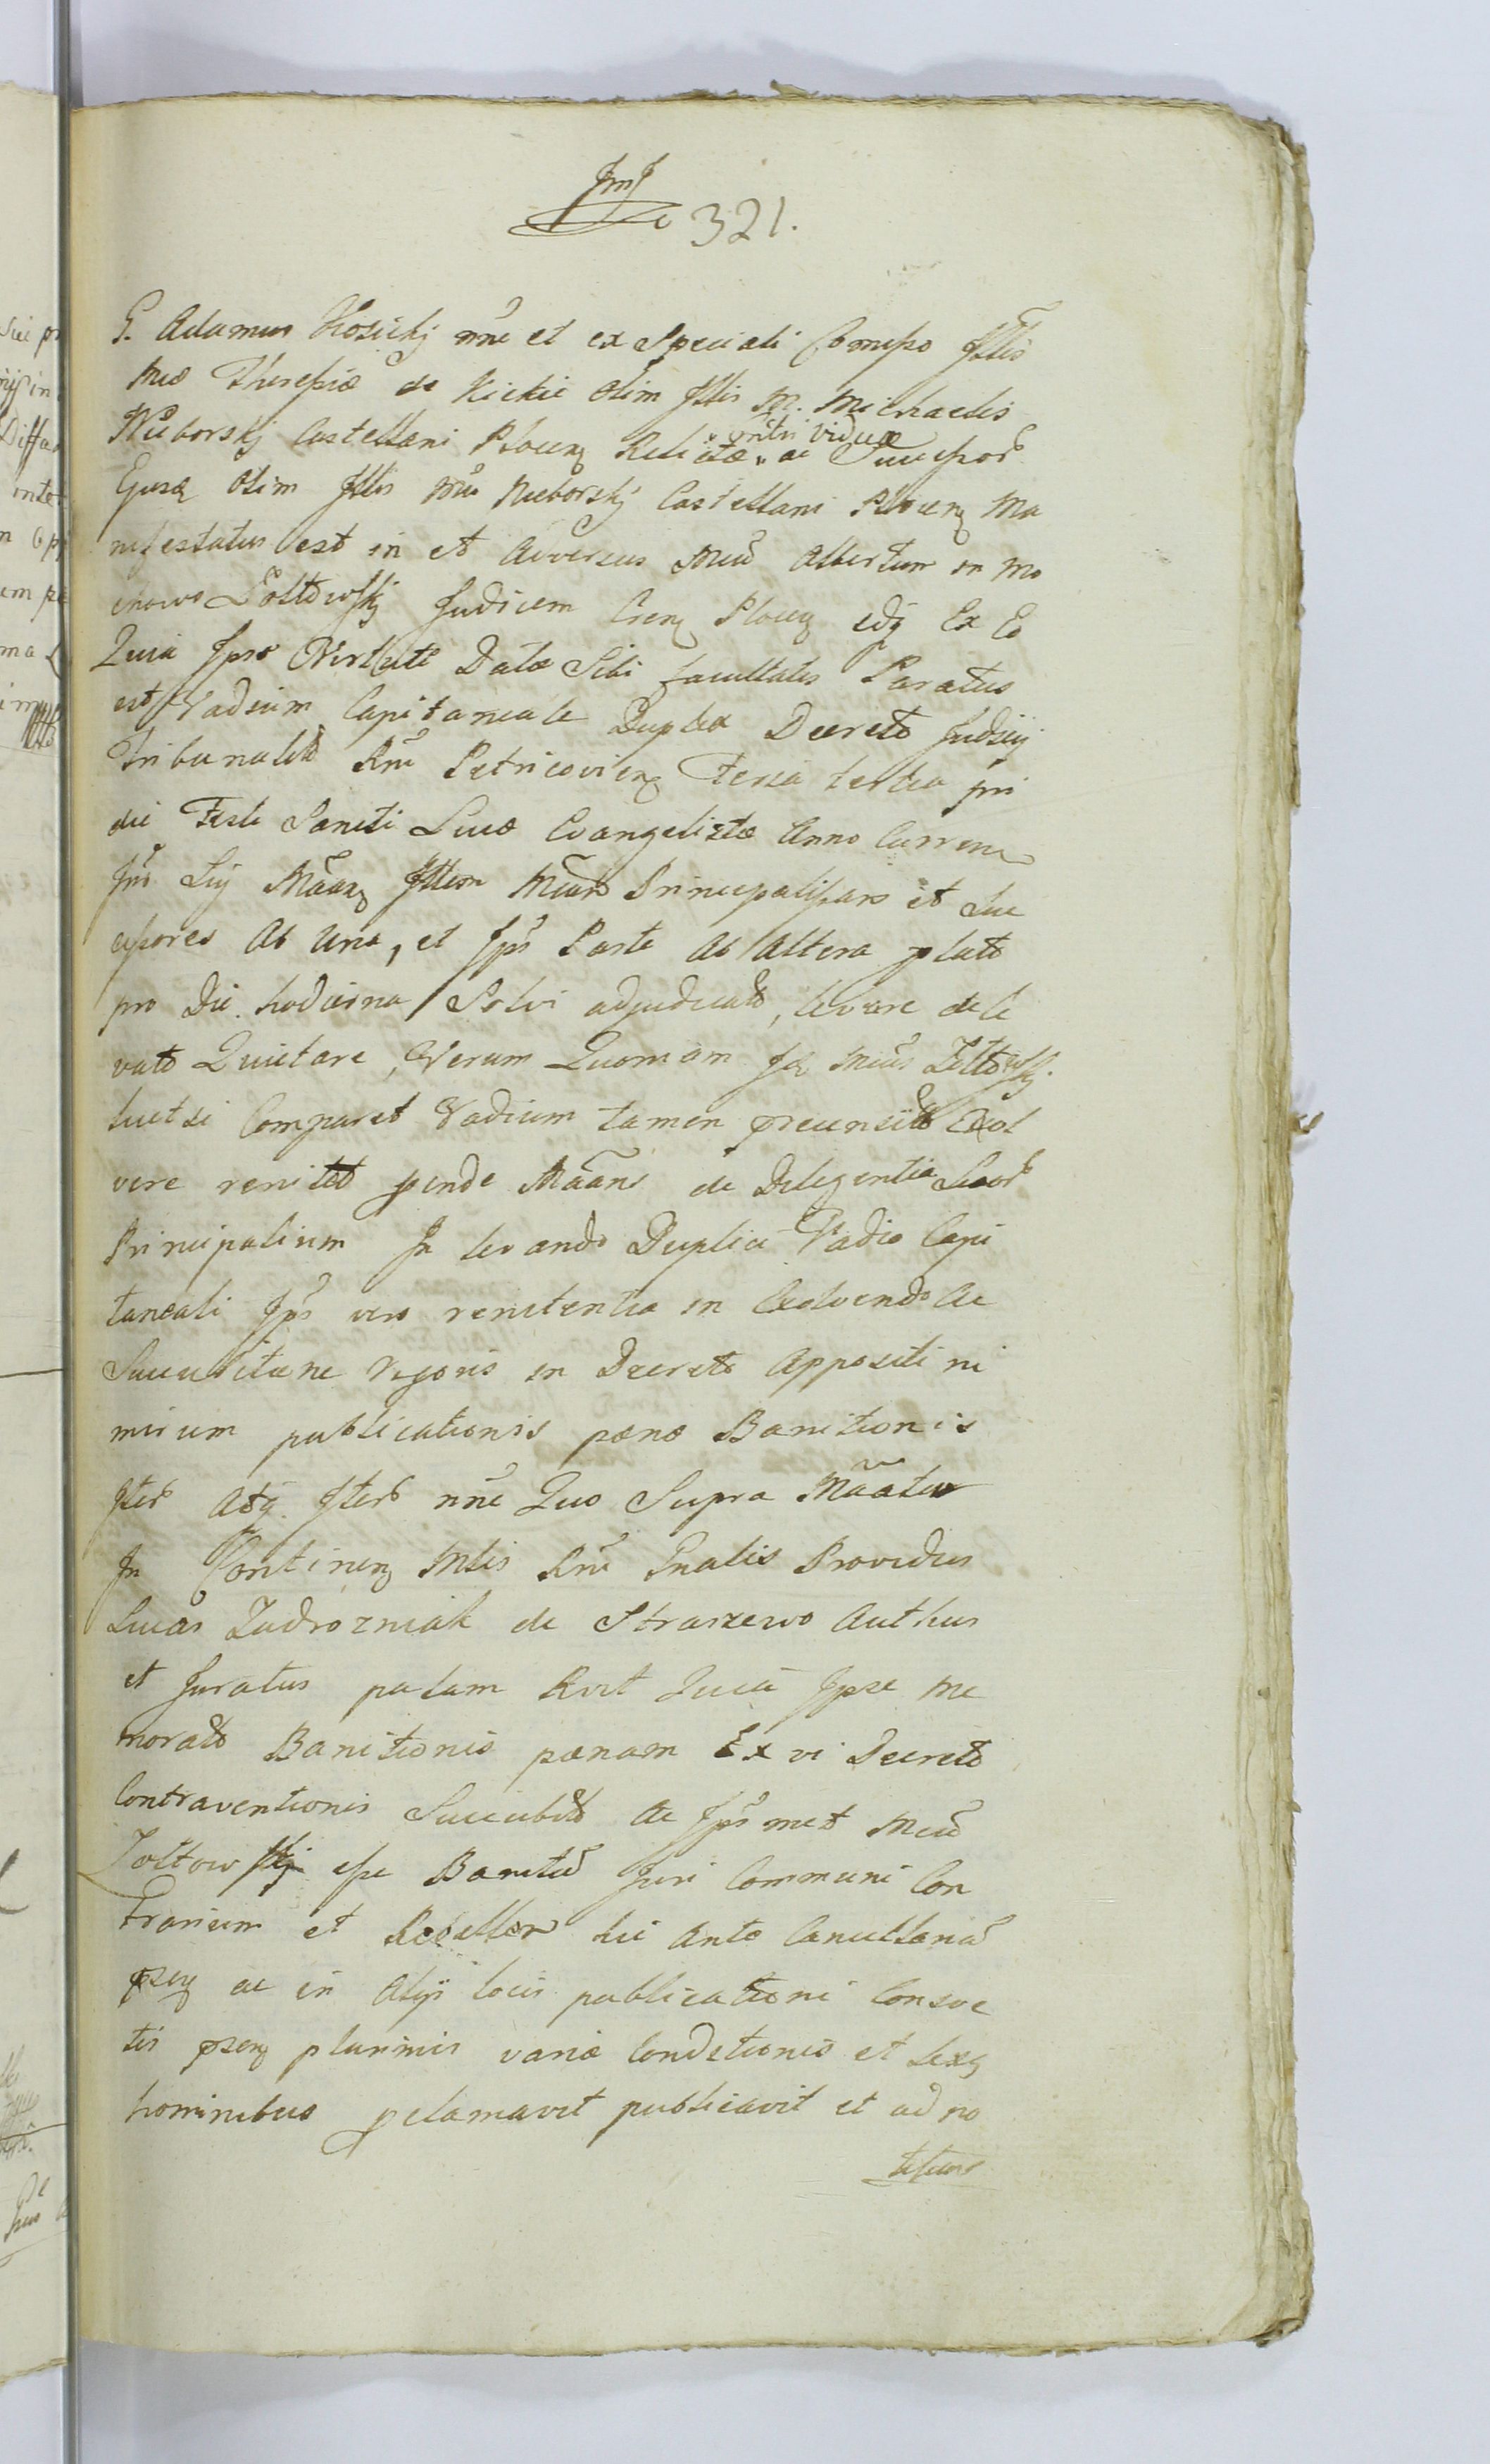 JmJ
321.
G. Adamus Kosickj nne et ex Speciali Comisso Jllis
Mcæ Theressiæ de Kickie olim Jllis M. Michaelis
Nieborskj Castellani Plocen Relictæ ac Successor
viduæ
Ejusd olim Jllis Mci Nieborskj Castellani Plocen Ma
nifestatus est in et adversus Mcum Albertum in Mo
chowo Zołtowskj Judicem Cren Plocen idq Ex Eo
Quia Ipse Virtute Datæ Sibi facultatis Paratus
est Vadium Capitaneale Duplex Decreto Judicij
Tribunalit Rni Petricovien Feria tertia pri
die Festi Sancti Lucæ Evangelistæ Anno Curren
Jnr Suj Maan Jllem Mcam Principalissam et Suc
cessores Ab una, et Jps Parte Ab Altera plato
pro Die hodierna Solvi adjudicato, levare de le
vato Quietare, Verum Quoniam Jd Mcus Zołtowskj
licet si Comparet Vadium tamen precensito Exol
vere renitet pinde Maans de Deligentia Suor
Principalium In levando Duplici Vadio Capi
taneali Jps vero renitentia in Exolvendo ac
Succubitione rigoris in Decreto Appositi ni
mirum publicationis pænæ Banitionis
Iter Atq Iter nne Quo Supra Maatur
In Continen Mlis Rni Gnalis Providus
Lucas Zadrozniak de Straszewo Authus
et Juratus palam Rvit Quia Ipse me
morato Banitionis pœnam Ex vi Decreto
Contraventionis Succubito ac Jpsmet Mcum
Zołtowskj esse Banitum Juri Communi Con
trarium et Rebellem hic Ante Cancellaria
psen ac in Alijs locis publicationi Consve
tis psen plurimis variæ Conditionis et Sexq
hominibus pclamavit publicavit et ad no
titiam